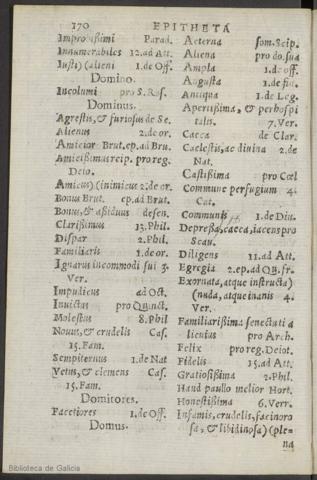 170 EPITHETA
Improbissimi Parad.
Innumerabiles 12.ad Att.
Iusti) (alieni 1.de Off.
Domino.
Incolumi pro S.Ros.
Dominus.
Agrestis, & furiosus de Se.
Alienus 2.de or.
Amicior Brut.ep.ad Bru.
Amicissimus reip. pro reg.
Deio.
Amicus) (inimicus 2.de or.
Bonus Brut. ep.ad Brut.
Bonus, & assiduus de sen.
Clarissimus 13.Phil.
Dispar 2.Phil.
Familiaris 1.de or.
Ignarus incommodi sui 3.
Ver.
Impudicus ad Oct.
Invictus pro Quinct.
Molestus 8.Phil
Novus, & crudelis Cas.
15.Fam.
Sempiternus 1.de Nat
Vetus, & clemens Cas.
15.Fam.
Domitores.
Facetiores 1.de Off.
Domus.
Aeterna som.Scip.
Aliena pro do.sua
Ampla 1.de off.
Angusta 1.de fin.
Antiqua 1.de Leg.
Apertissima, & perhospi
talis. 7.Ver.
Caeca de Clar.
Caelestis, ac divina 2.de
Nat.
Castissima pro Cael
Commune perfugium 4.
Cat.
Communis 1.de Diu.
Depressa, caeca, iacens pro
Scau.
Diligens 11.ad Att.
Egregia 2.ep.ad Qu.fr.
Exornata, atque instructa)
(nuda, atque inanis 4.
Ver.
Familiarissima senectuti a
licuius pro Arch.
Felix pro reg.Deiot.
Fidelis 15.ad Att.
Gratiosissima 2.Phil.
Haud paullo melior Hort.
Honestissima 6.Verr.
Infamis, crudelis, facinoro
sa, & libidinosa) (ple-
na
Biblioteca de Galicia